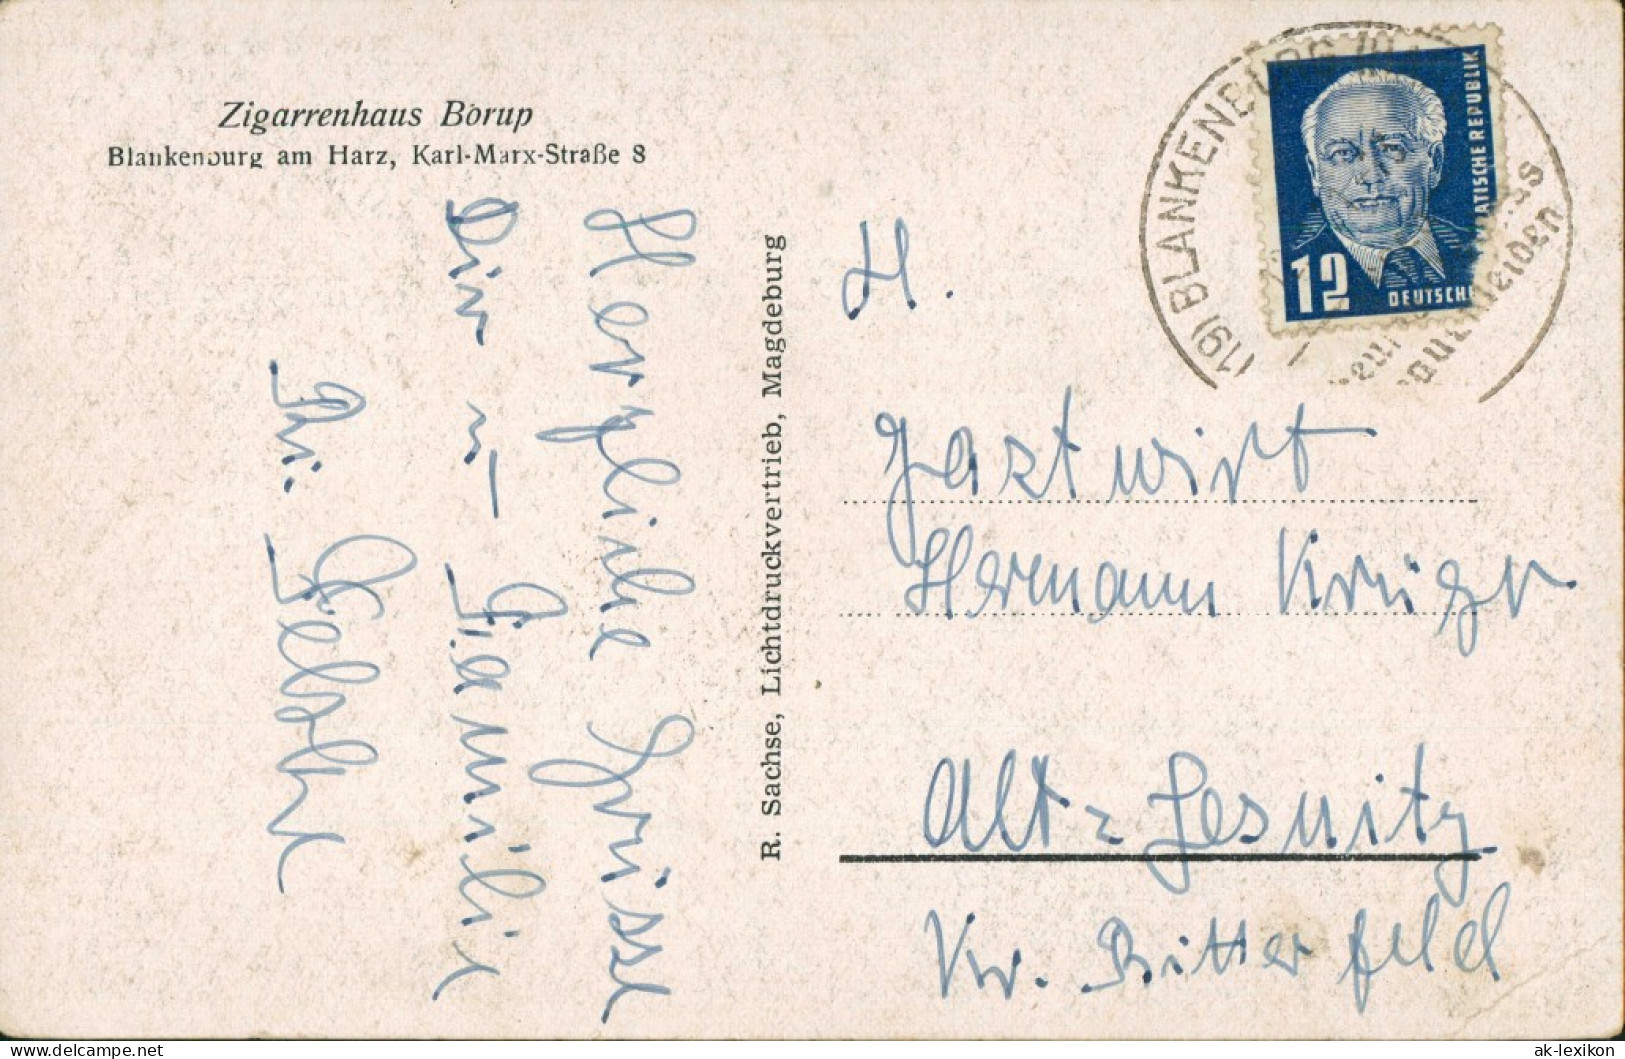 Zigarrenhaus Borup
Blankenburg am Harz, Karl-Marx-Straße 8
Herzliche Grüsse
Dir u. Familie
Fr.
R. Sachse, Lichtdruckvertrieb, Magdeburg
(19) BLANKENBURG
12
DEUTSCHE
ATISCHE REPUBLIK
H.
Gastwirt
Hermann Krüger
Alt-Jessnitz
Kr. Bitterfeld
hit-caption.com
ak-lexikon